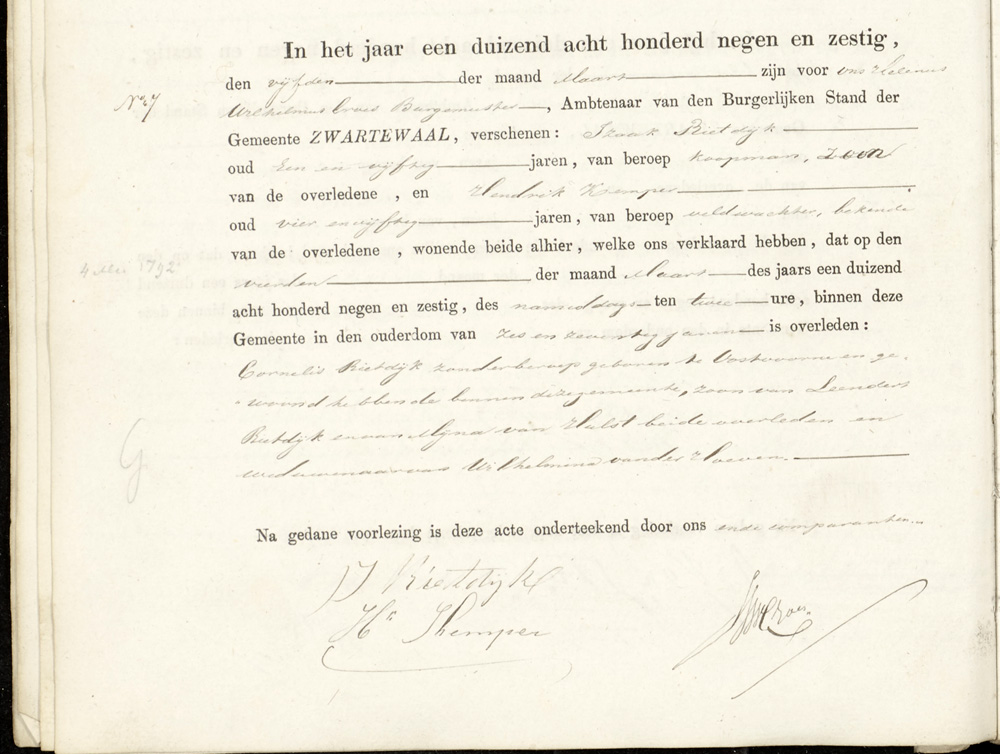 In het jaar een duizend acht honderd negen en zestig,
den vijfden der maand Maart zijn voor ons Helenus
No 7
Wilhelmus Croes Burgemeester, Ambtenaar van den Burgerlijken Stand der
Gemeente ZWARTEWAAL, verschenen: Izaak Rietdijk
oud Een en vijftig jaren, van beroep koopman, zoon
van de overledene, en Hendrik Kemper
oud vier en vijftig jaren, van beroep veldwachter, bekende
van de overledene, wonende beide alhier, welke ons verklaard hebben, dat op den
4 Mei 1792
vierden der maand Maart des jaars een duizend
acht honderd negen en zestig, des namiddags ten twee ure, binnen deze
Gemeente in den ouderdom van zes en zeventig jaren is overleden:
Cornelis Rietdijk zonder beroep geboren te Oostvoorne en ge-
woond hebbende binnen deze gemeente, zoon van Leendert
Rietdijk en van Mijna van Hulst beide overleden en
weduwnaar van Wilhelmina van der Hoeven.
G
Na gedane voorlezing is deze acte onderteekend door ons en de comparanten.
I Rietdijk
Hk Kemper
HWCroes